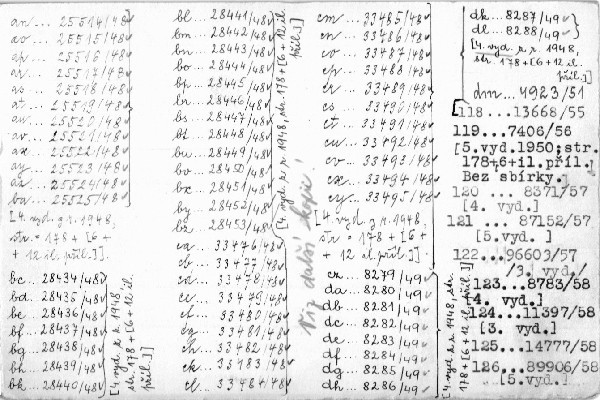 an... 25514/48
ao... 25515/48
ap... 25516/48
ar... 25517/48
as... 25518/48
at... 25519/48
au... 25520/48
av... 25521/48
ax... 25522/48
ay... 25523/48
az... 25524/48
ba... 25525/48
[4. vyd. z r. 1948,
str. = 178 + [6 +
+ 12 il. příl.]]
bc... 28434/48
bd... 28435/48
be... 28436/48
bf... 28437/48
bg... 28438/48
bh... 28439/48
bk... 28440/48
[4. vyd. z r. 1948
str. 178+[6+12 il.
příl.]]
bl... 28441/48
bm... 28442/48
bn... 28443/48
bo... 28444/48
bp... 28445/48
br... 28446/48
bs... 28447/48
bt... 28448/48
bu... 28449/48
bv... 28450/48
bx... 28451/48
by... 28452/48
bz... 28453/48
[4. vyd. z r. 1948, str. 178+[6+12 il.
příl.]]
ca... 33476/48
cb... 33477/48
cd... 33478/48
ce... 33479/48
cf... 33480/48
cg... 33481/48
ch... 33482/48
ck... 33483/48
cl... 33484/48
Viz další kopie!
cm... 33485/48
cn... 33486/48
co... 33487/48
cp... 33488/48
cr... 33489/48
cs... 33490/48
ct... 33491/48
cu... 33492/48
cv... 33493/48
cx... 33494/48
cy... 33495/48
[4. vyd. z r. 1948,
str. = 178 + [6 +
+ 12 il. příl.]]
cz... 8279/49
da... 8280/49
db... 8281/49
dc... 8282/49
de... 8283/49
df... 8284/49
dg... 8285/49
dh... 8286/49
[4. vyd. z r. 1948, str.
178+[6+12 il. příl.]]
dk... 8287/49
dl... 8288/49
[4. vyd. z r. 1948,
str. 178+[6+12 il.
příl.]]
dm... 4923/51
118...13668/55
119...7406/56
[5.vyd.1950;str.
178+6+il.příl.
Bez sbírky.]
120 ... 8371/57
[4. vyd.]
121 ... 87152/57
[5.vyd. ]
122...96603/57
/3. vyd./
123...8783/58
[4. vyd.]
124...11397/58
[3. vyd.]
125...14777/58
126...89906/58
[5.vyd.]